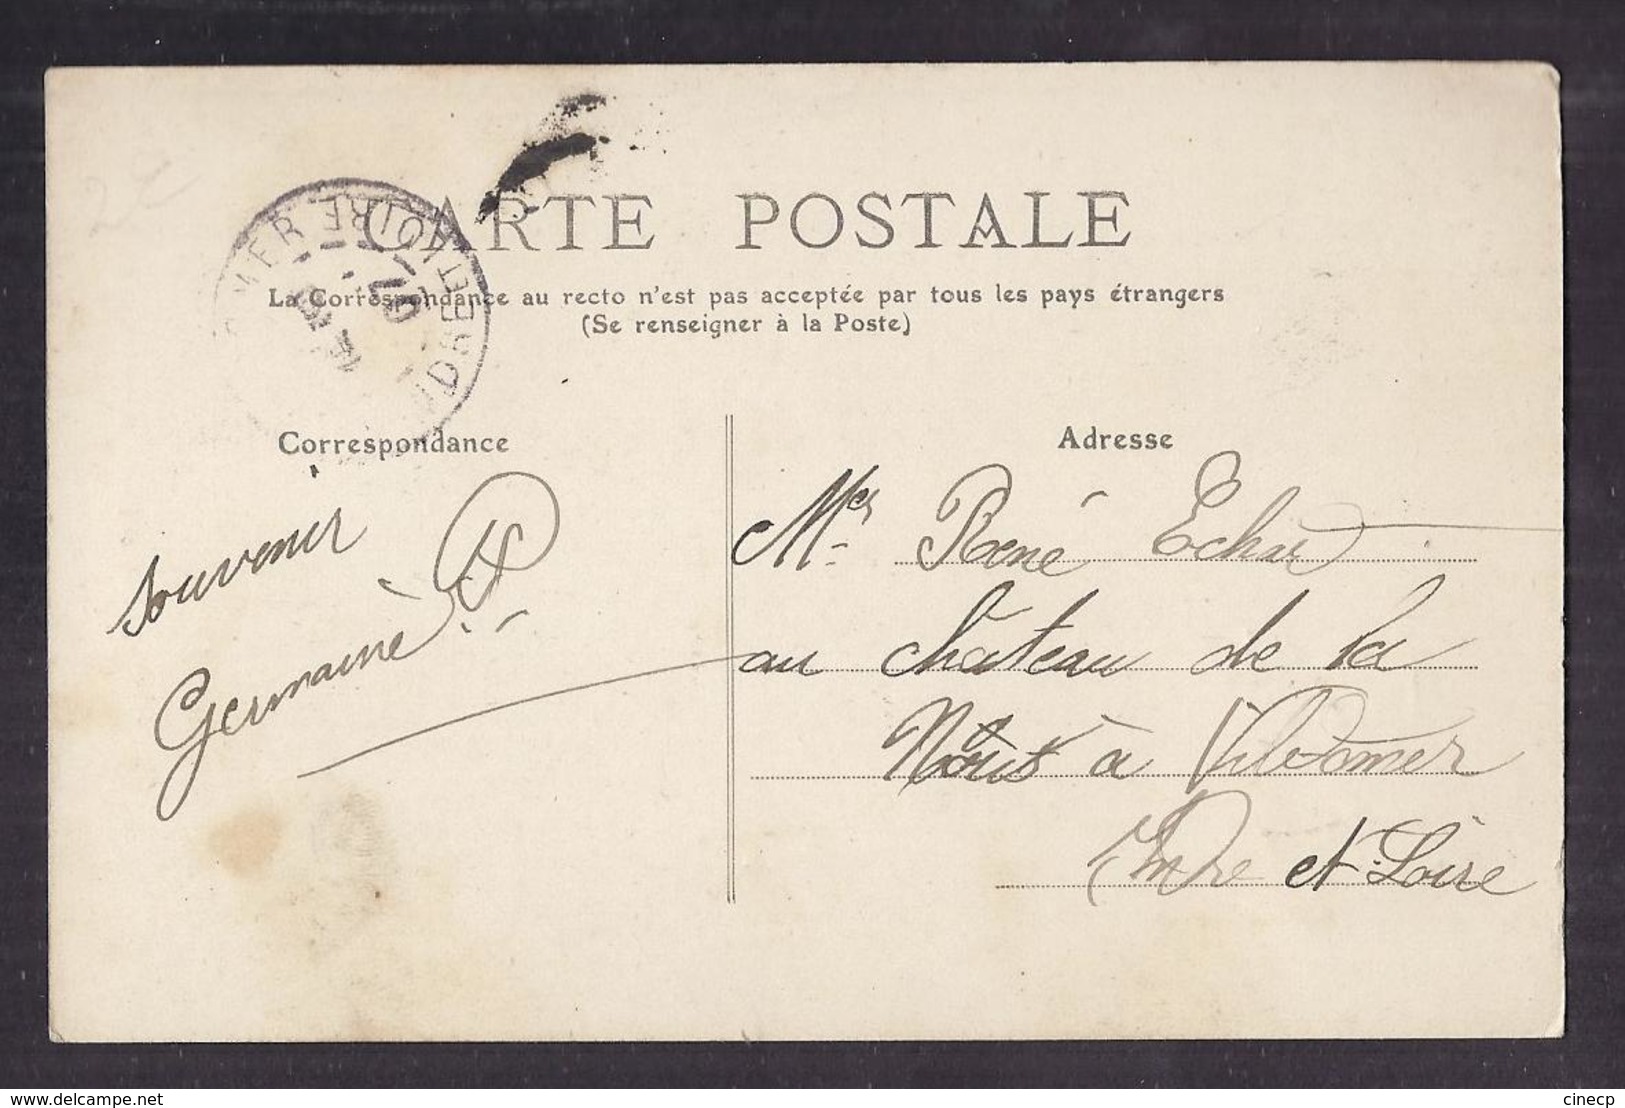 CARTE POSTALE
La Correspondance au recto n'est pas acceptée par tous les pays étrangers
(Se renseigner à la Poste)
INDRE ET LOIRE
Correspondance
Adresse
Souvenir
Germaine
René
au Château de la
à Villedomer
Indre et Loire
www.delcampe.net
cinecp